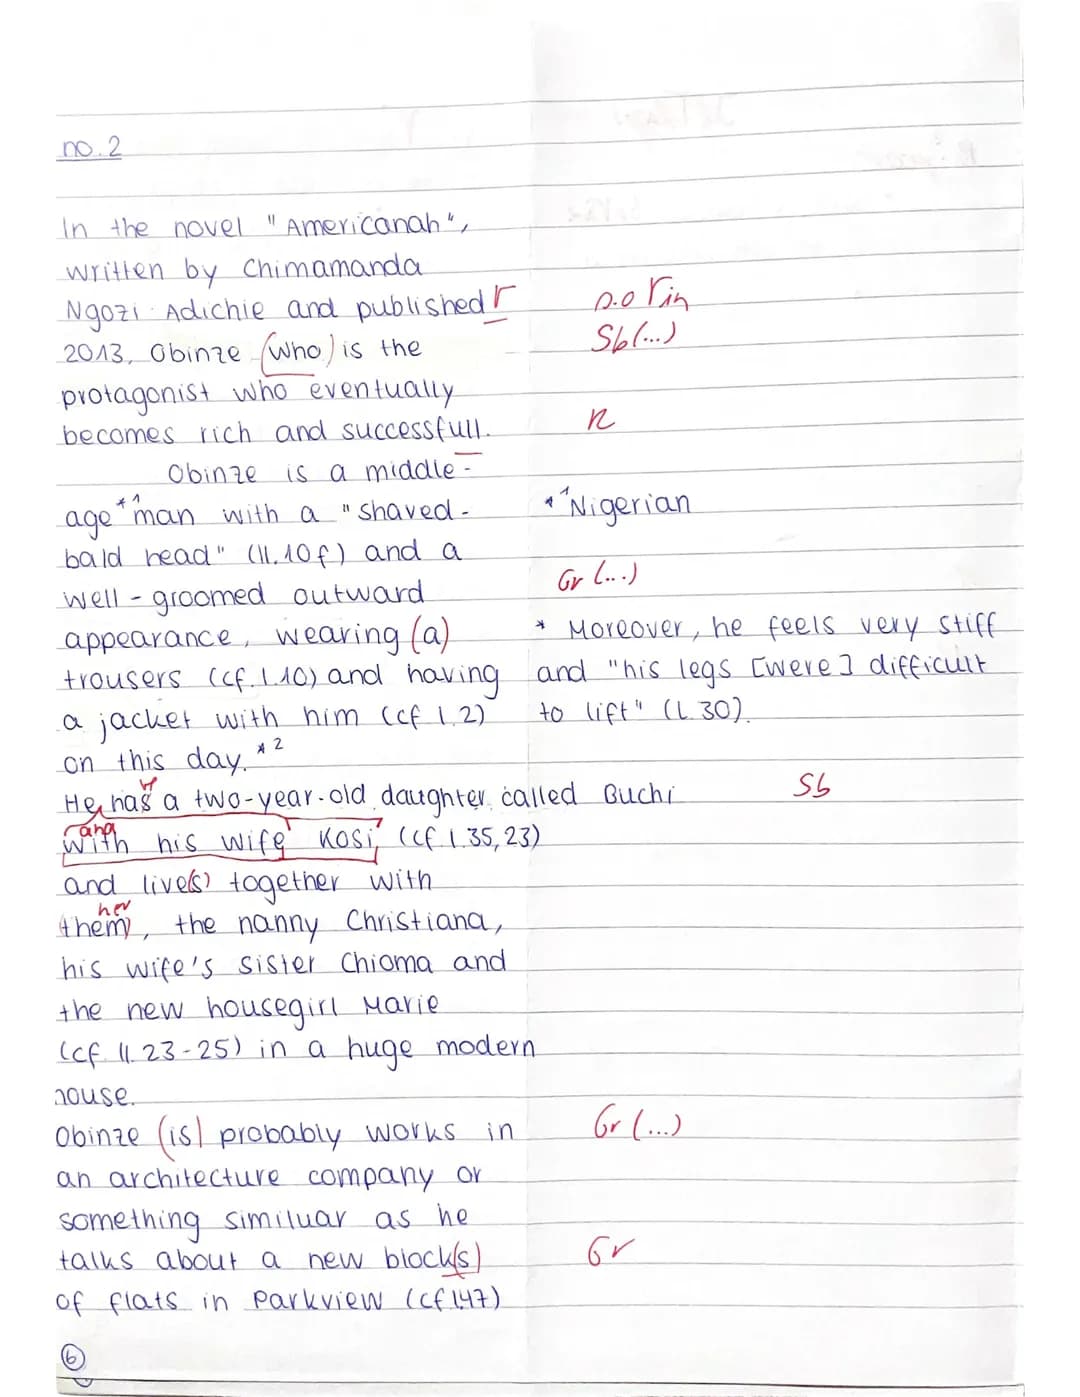 no. 2
In the novel "Americanah",
written by Chimamanda
Ngozi Adichie and published r
2013, Obinze (who) is the
protagonist who eventually
becomes rich and successfull.
Obinze is a middle-
age *1 man with a "shaved-
bald head" (ll. 10f) and a
well-groomed outward
appearance, wearing (a)
trousers (cf. l. 10) and having
a jacket with him (cf l. 2)
on this day. *2
He has a two-year-old daughter called Buchi
and
with his wife Kosi, (cf. l. 35, 23)
and live(s) together with
her
them, the nanny Christiana,
his wife's sister Chioma and
the new housegirl Marie
(cf. ll. 23-25) in a huge modern
house.
Obinze (is) probably works in
an architecture company or
something similuar as he
talks about a new block(s)
of flats in Parkview (cf l.47)
6
Γin
Sb (...)
R
*1 Nigerian
Gr (...)
* Moreover, he feels very stiff
and "his legs [were] difficult
to lift" (l. 30).
Sb
Gr (...)
Gr